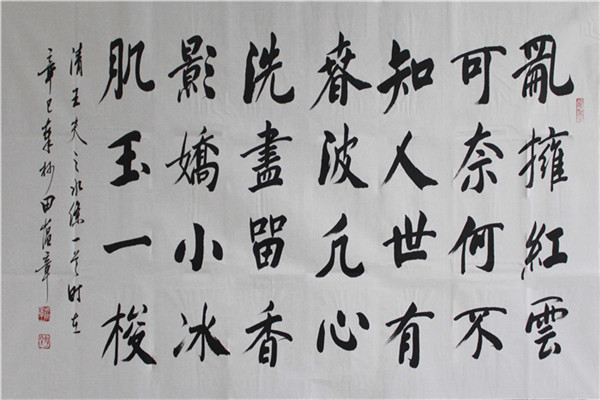 亂擁紅雲
可奈何不
知人世有
春波凡心
洗盡留香
影嬌小冰
肌玉一梭
清王夫之水僊一首時在
辛巳年杪田英章